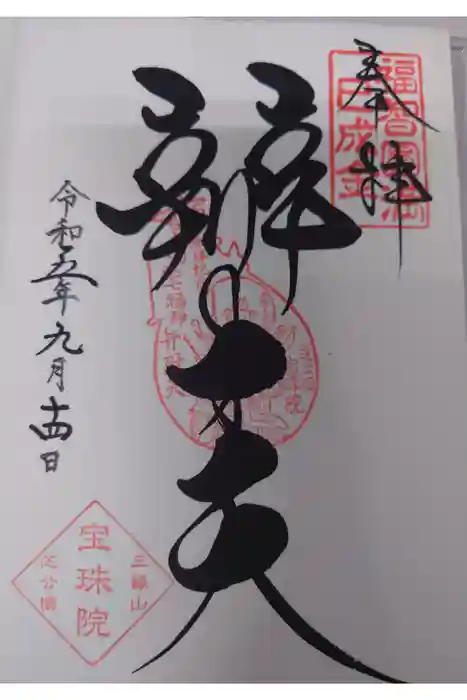 奉拝
福智円満
巳成金
辨才天
令和五年九月十四日
三縁山
宝珠院
芝公園